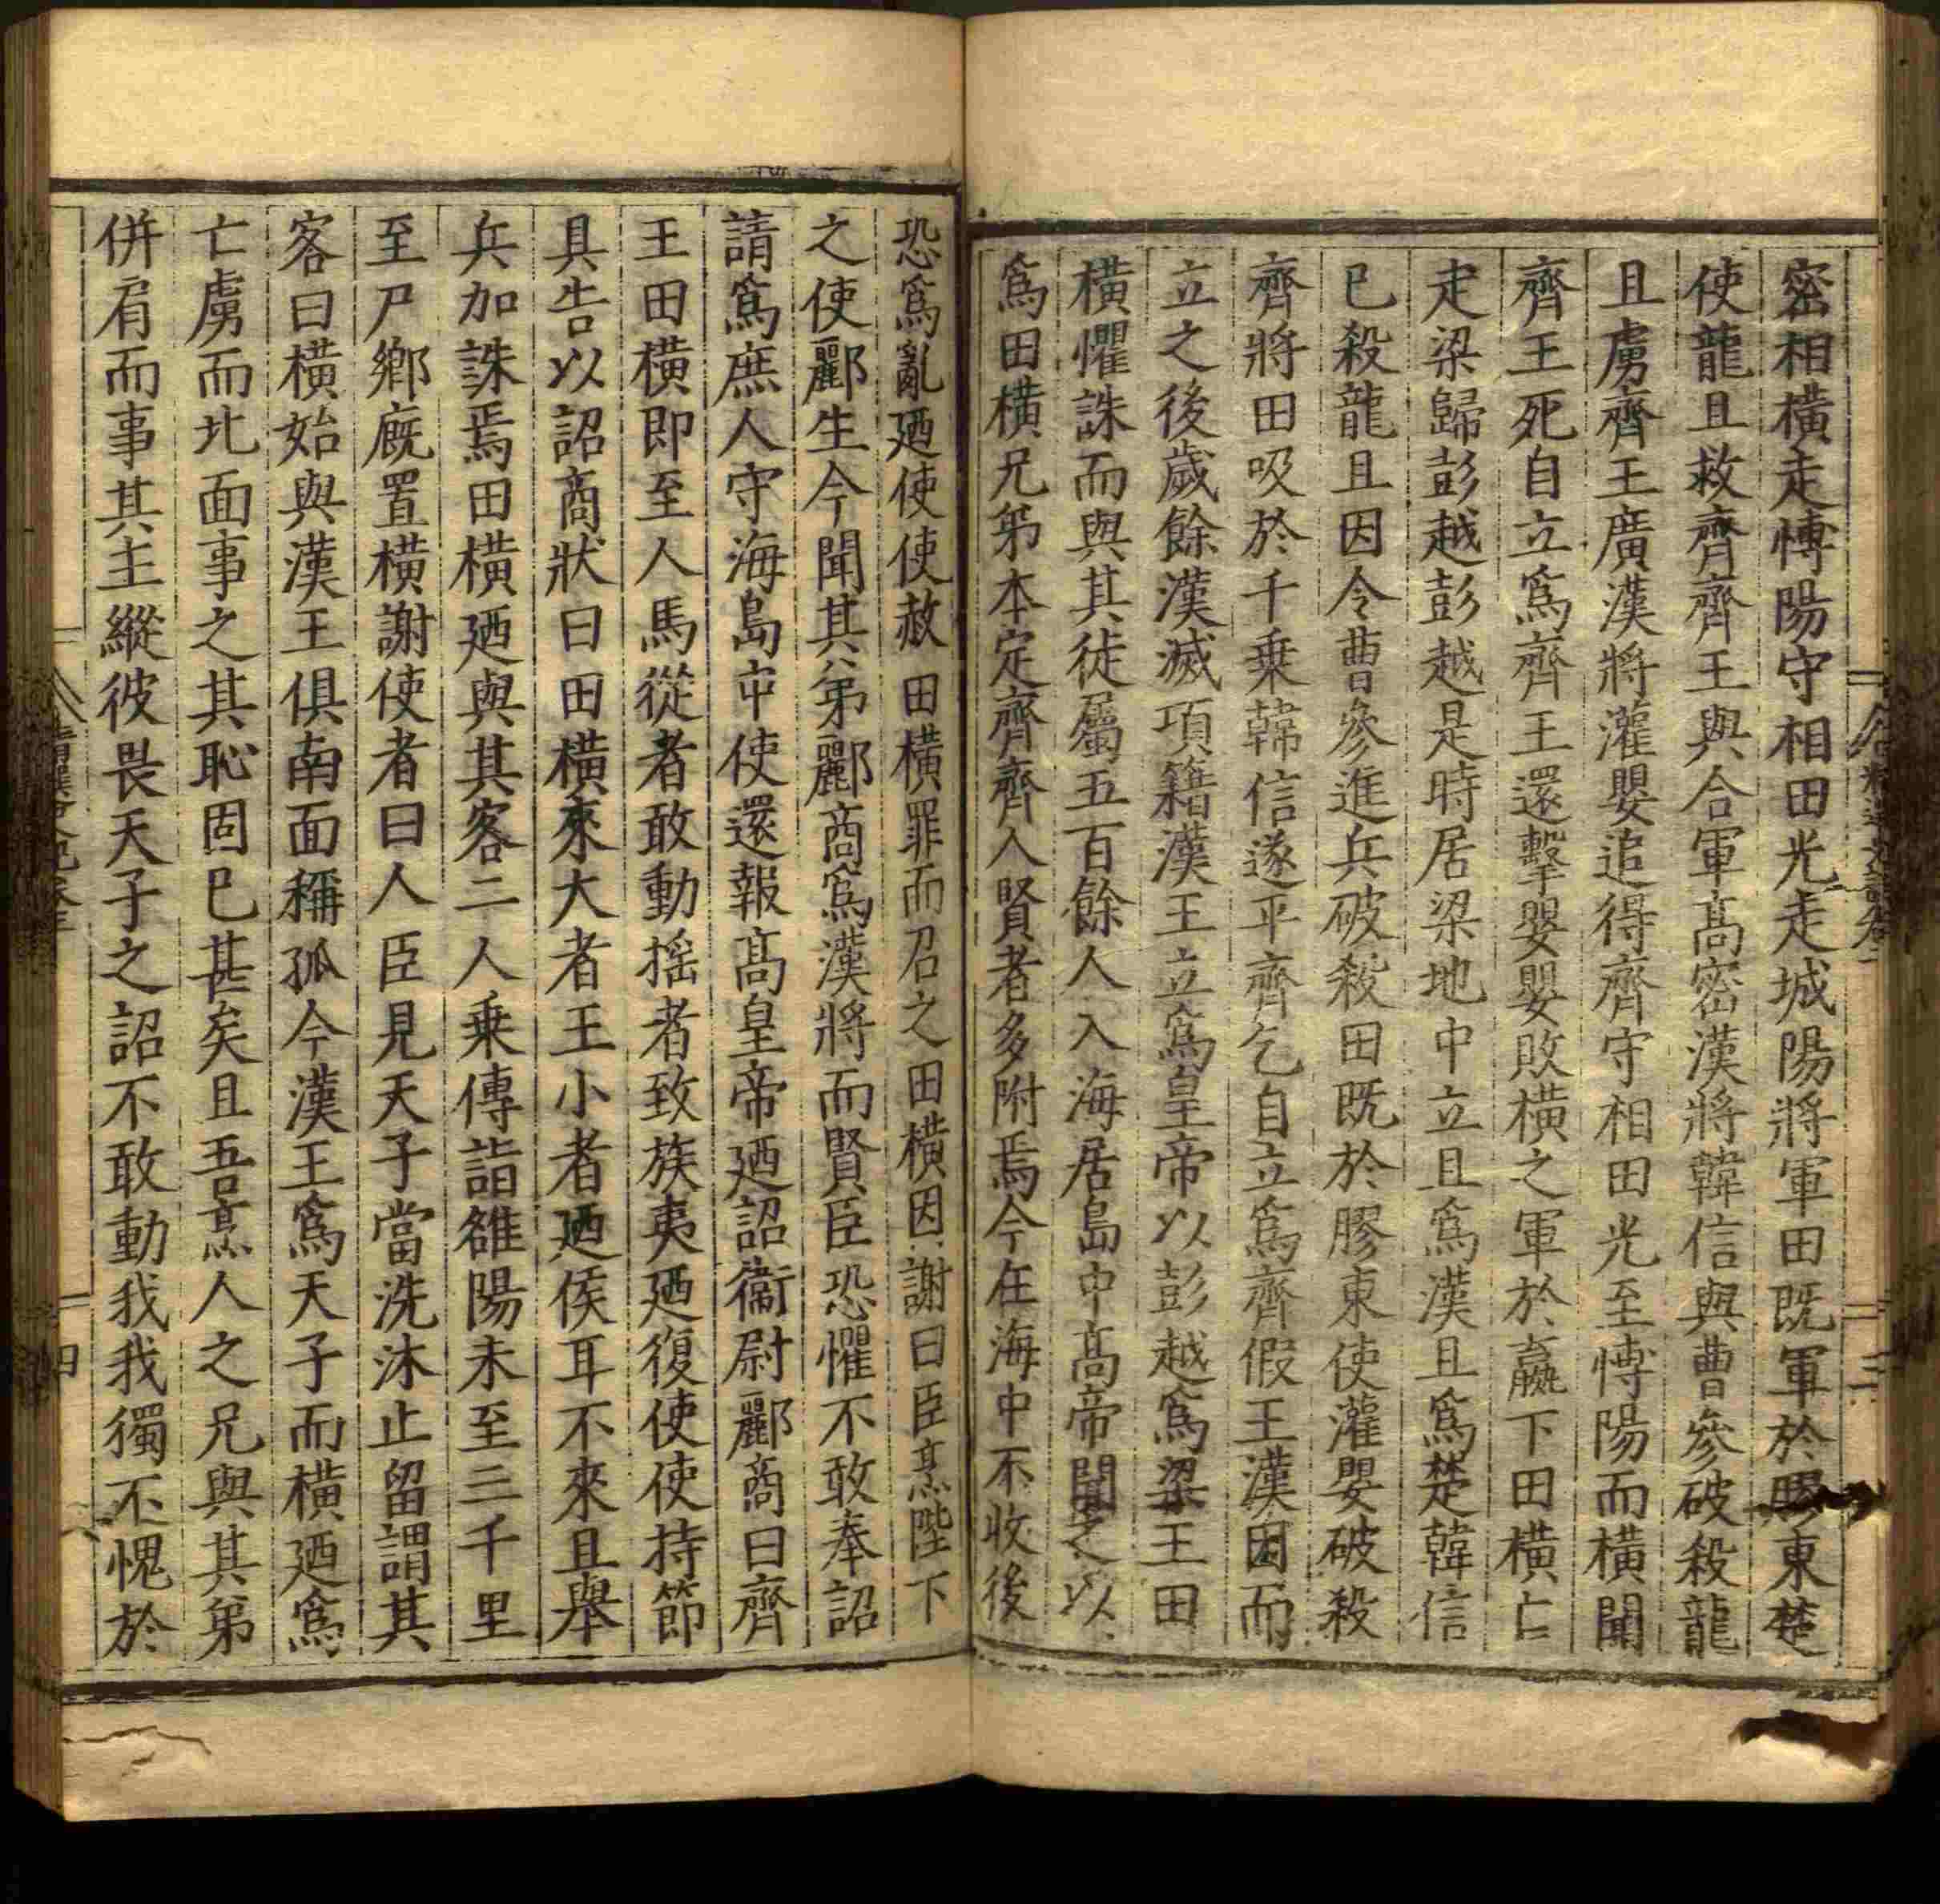 密相橫走博陽守相田光走城陽將軍田既軍於膠東楚
使龍且救齊齊王與合軍高密漢將韓信與曹參破殺龍
且虜齊王廣漢將灌嬰追得齊守相田光至博陽而橫聞
齊王死自立爲齊王還擊嬰嬰敗橫之軍於嬴下田橫亡
走梁歸彭越彭越是時居梁地中立且爲漢且爲楚韓信
已殺龍且因令曹參進兵破殺田既於膠東使灌嬰破殺
齊將田吸於千乗韓信遂平齊乞自立爲齊假王漢因而
立之後歲餘漢滅項籍漢王立爲皇帝以彭越爲梁王田
橫懼誅而與其徒屬五百餘人入海居島中高帝聞之以
爲田橫兄弟本定齊齊人賢者多附焉今在海中不收後
恐爲亂廼使使赦田橫罪而召之田橫因謝曰臣烹陛下
之使酈生今聞其弟酈商爲漢將而賢臣恐懼不敢奉詔
請爲庶人守海島中使還報高皇帝廼詔衞尉酈商曰齊
王田橫即至人馬從者敢動搖者致族夷廼復使使持節
具告以詔商狀曰田橫來大者王小者廼侯耳不來且舉
兵加誅焉田橫廼與其客二人乗傳詣雒陽未至三千里
至尸鄉廐置橫謝使者曰人臣見天子當洗沐止留謂其
客曰橫始與漢王俱南面稱孤今漢王爲天子而橫廼爲
亡虜而北面事之其恥固已甚矣且吾烹人之兄與其弟
併肩而事其主縱彼畏天子之詔不敢動我我獨不愧於
四